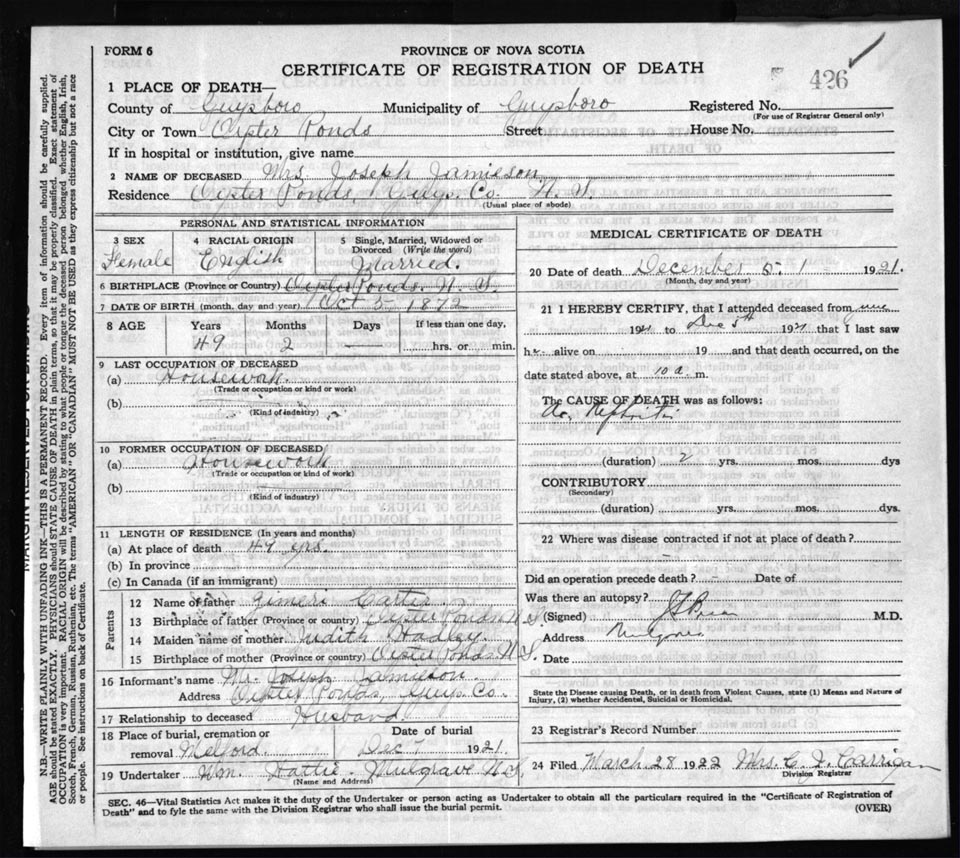 FORM 6
PROVINCE OF NOVA SCOTIA
CERTIFICATE OF REGISTRATION OF DEATH
426
1 PLACE OF DEATH—
County of Guysboro Municipality of Guysboro Registered No.
(For use of Registrar General only)
City or Town Oyster Ponds Street House No.
If in hospital or institution, give name
2 NAME OF DECEASED Mrs. Joseph Jamieson
Residence Oyster Ponds Guys. Co. N. S.
(Usual place of abode)
PERSONAL AND STATISTICAL INFORMATION
3 SEX 4 RACIAL ORIGIN 5 Single, Married, Widowed or Divorced (Write the word)
Female English Married.
6 BIRTHPLACE (Province or Country) Oyster Ponds. N. S.
7 DATE OF BIRTH (month, day and year) Oct 5 1872
8 AGE Years Months Days If less than one day,
49 2 hrs. or min.
9 LAST OCCUPATION OF DECEASED
(a) Housework.
(Trade or occupation or kind or work)
(b)
(Kind of industry)
10 FORMER OCCUPATION OF DECEASED
(a) Housework
(Trade or occupation or kind of work)
(b)
(Kind of industry)
11 LENGTH OF RESIDENCE (In years and months)
(a) At place of death 47 yrs.
(b) In province
(c) In Canada (if an immigrant)
Parents
12 Name of father Carter
13 Birthplace of father (Province or country) Oyster Ponds N. S.
14 Maiden name of mother Judith Hadley
15 Birthplace of mother (Province or country) Oyster Ponds N. S.
16 Informant's name Mr. Joseph Jamieson
Address Oyster Ponds, Guys. Co.
17 Relationship to deceased Husband.
18 Place of burial, cremation or removal Melford Date of burial Dec 7 1921.
19 Undertaker Wm. Hattie Mulgrave N. S.
(Name and Address)
MEDICAL CERTIFICATE OF DEATH
20 Date of death December 5. 1921.
(Month, day and year)
21 I HEREBY CERTIFY, that I attended deceased from
1921 to Dec 5th 1921 that I last saw
her alive on 19 and that death occurred, on the
date stated above, at 10 a. m.
The CAUSE OF DEATH was as follows:
Nephritis
(duration) 2 yrs. mos. dys
CONTRIBUTORY
(Secondary)
(duration) yrs. mos. dys.
22 Where was disease contracted if not at place of death?
Did an operation precede death? – Date of
Was there an autopsy?
(Signed) M.D.
Address Mulgrave
Date
State the Disease causing Death, or in death from Violent Causes, state (1) Means and Nature of
Injury, (2) whether Accidental, Suicidal or Homicidal.
23 Registrar's Record Number
24 Filed March 28 1922 Mrs. C. J. Carrigan
Division Registrar
SEC. 46—Vital Statistics Act makes it the duty of the Undertaker or person acting as Undertaker to obtain all the particulars required in the "Certificate of Registration of
Death" and to fyle the same with the Division Registrar who shall issue the burial permit.
(OVER)
MARGIN RESERVED FOR BINDING
N.B.—WRITE PLAINLY WITH UNFADING INK—THIS IS A PERMANENT RECORD. Every item of information should be carefully supplied.
AGE should be stated EXACTLY. PHYSICIANS should STATE CAUSE OF DEATH in plain terms, so that it may be properly classified. Exact statement of
OCCUPATION is very important. RACIAL ORIGIN will be described by stating to what people or tongue the deceased person belonged whether English, Irish,
Scotch, French, German, Russian, Ruthenian, etc. The terms "AMERICAN" OR "CANADIAN" MUST NOT BE USED as they express citizenship but not a race
or people. See instructions on back of Certificate.